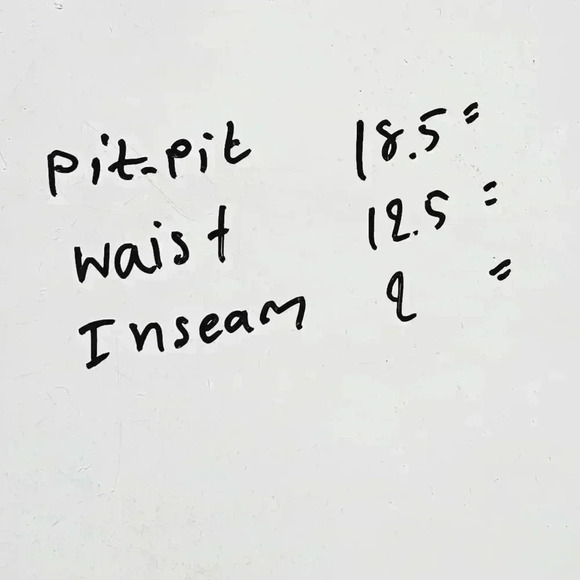 pit-pit 18.5"
waist 12.5"
Inseam 2"